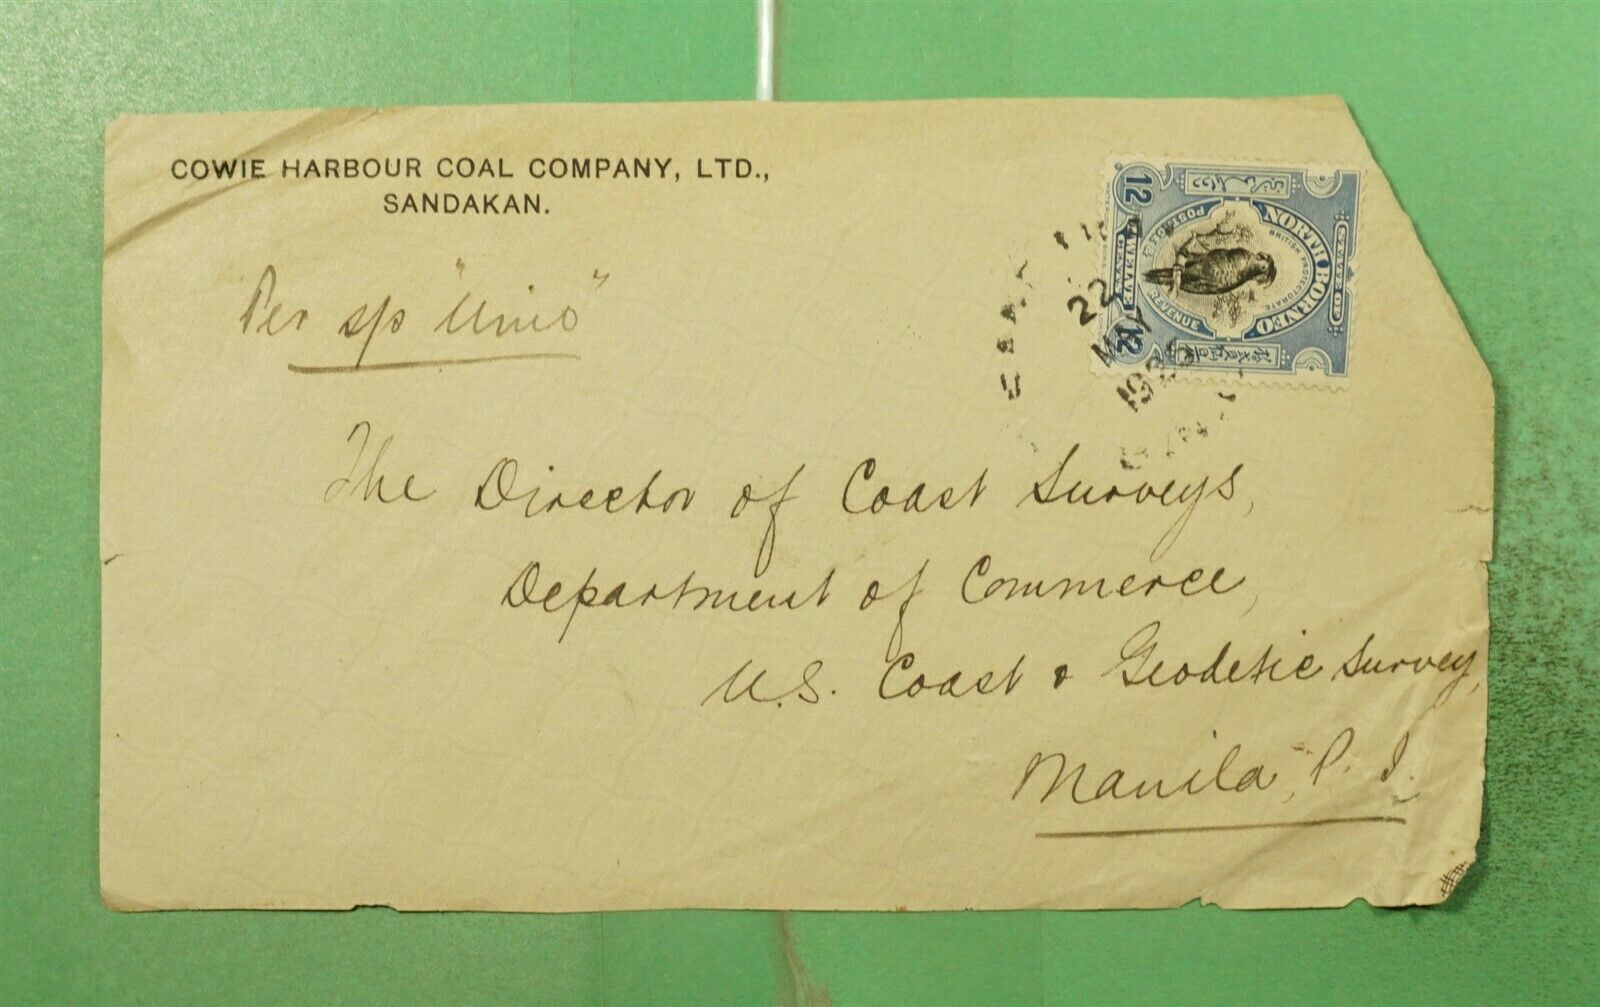 COWIE HARBOUR COAL COMPANY, LTD.,
SANDAKAN.
Per s/p "Unio"
12 12
STATE OF
NORTH BORNEO
BRITISH PROTECTORATE
POSTAGE
REVENUE
TWELVE CENTS
22
MAY
The Director of Coast Surveys,
Department of Commerce,
U.S. Coast & Geodetic Survey,
Manila, P. I.